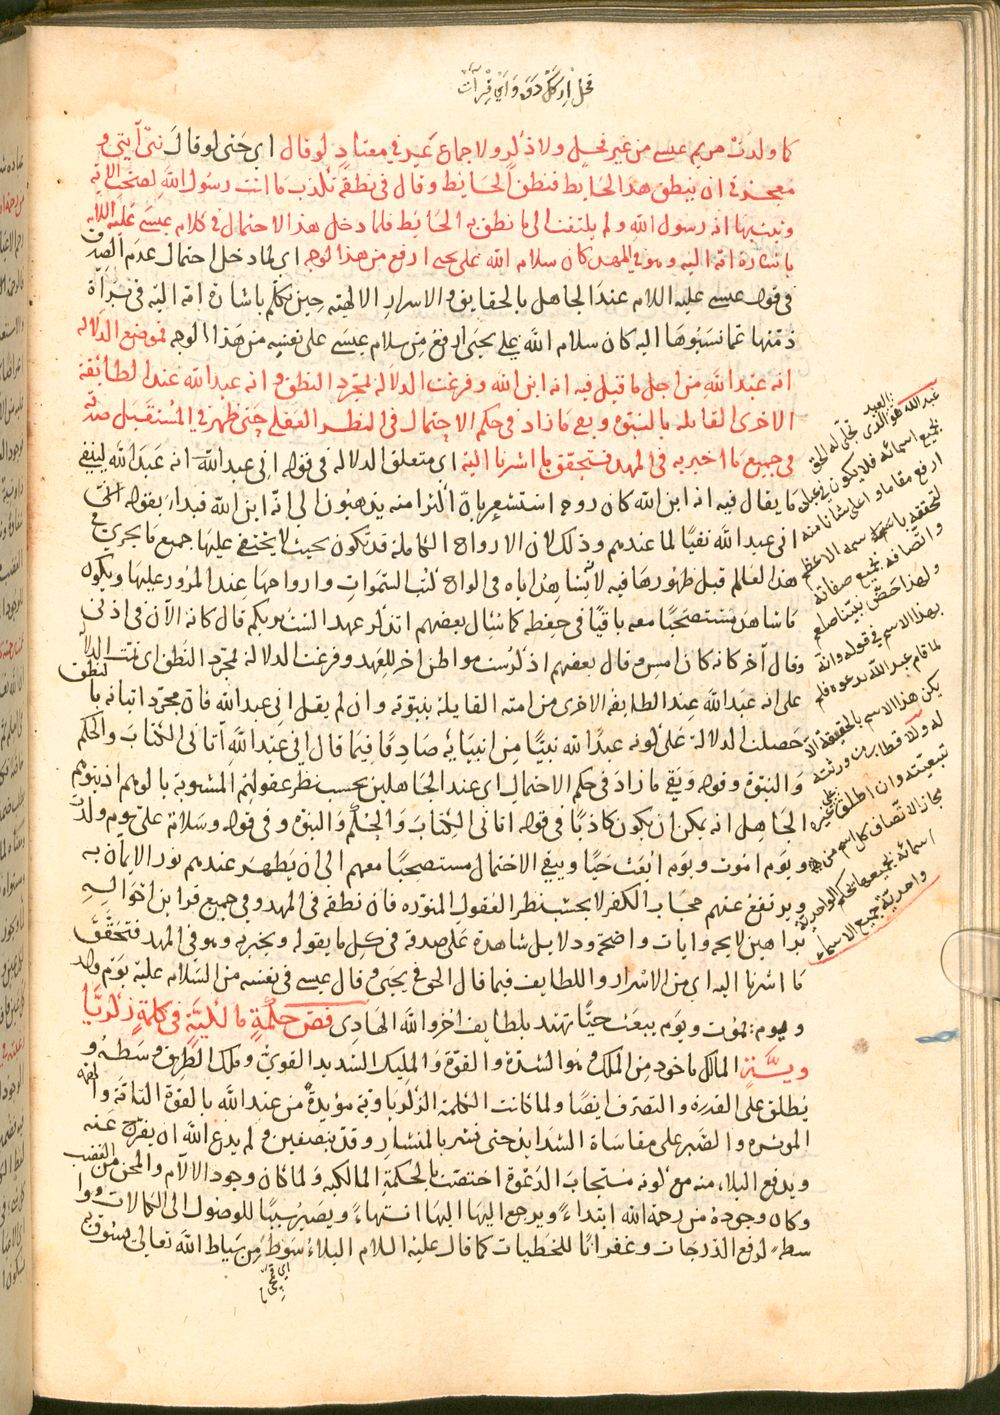 فحل اركك دقه واي قرآت
كما ولدت مريم عيسى من غير فحل ولا ذكر ولا جماع عرفي معتاد لو قال اي حتى لو قال نبي آيتي و
معجزتي ان ينطق هذا الحايط فنطق الحايط وقال في نطقه تكذب ما انت رسول الله لصحت الاية
وثبت بها انه رسول الله ولم يلتفت الى ما نطق به الحايط فلما دخل هذا الاحتمال في كلام عيسى عليه السلام
باشارة امه اليه وهو في المهد كان سلام الله على يحيى ارفع من هذا الوجه اي لما دخل احتمال عدم الصدق
في قول عيسى عليه السلام عند الجاهل بالحقايق والاسرار الالهية حين تكلم باشارة امه اليه في براءة
ذمتها عما نسبوها اليه كان سلام الله على يحيى ارفع من سلام عيسى على نفسه من هذا الوجه فموضع الدلالة
انه عبد الله من اجل ما قيل فيه انه ابن الله وفرغت الدلالة بمجرد النطق وانه عبد الله عند الطائفة
الاخرى القايلة بالنبوة وبقى ما زاد في حكم الاحتمال في النظر العقلي حتى ظهر في المستقبل صدقه
في جميع ما اخبر به في المهد فتحقق ما اشرنا اليه اي متعلق الدلالة في قوله اني عبد الله انه عبد الله لينفي
ما يقال فيه انه ابن الله كان روحه استشعر بان اكثر امته يذهبون الى انه ابن الله فبدأ بقوله
اني عبد الله نفيا لما عندهم وذلك لان الارواح الكاملة قد تكون بحيث لا يختفي عليها جميع ما يجري في
هذا العالم قبل ظهورها فيه لانها هداياه في الواح كتب السموات وارواحها عند المرور عليها ويكون
ما شاهد مستصحبا معه باقيا في حفظه كما سئل بعضهم اتذكر عهد الست بربكم قال كانه الآن في اذني
وقال آخر كانه كان امس وقال بعضهم اذكر ست مواطن اخر للعهد وفرغت الدلالة بمجرد النطق اي تمت الدلالة
على انه عبد الله عند الطايفة الاخرى من امته القايلة بنبوته وان لم يقل اني عبد الله فان مجرد اتيانه بالنطق
حصلت الدلالة على كونه عبدا لله نبيا من انبيائه صادقا فيما قال اني عبد الله آتاني الكتاب والحكم
والنبوة وقوله وبقى ما زاد في حكم الاحتمال اي عند الجاهلين بحسب نظر عقولهم المشوبة بالوهم اذ بنوهم
الجاهل انه يمكن ان يكون كاذبا في قوله اتاني الكتاب والحكم والنبوة وفي قوله وسلام علي يوم ولدت
ويوم اموت ويوم ابعث حيا ويبقى الاحتمال مستصحبا معهم الى ان يظهر عندهم نور الايمان به
ويرتفع عنهم حجاب الكفر لا بحسب نظر العقول المنوره فان نطقه في المهد وفي جميع قراين احواله
براهين لايحه وايات واضحة ودلايل شاهدة على صدقه في كل ما يقوله ويخبر به وهو في المهد فتحقق
ما اشرنا اليه اي من الاسرار واللطايف فيما قال الحق في يحيى وقال عيسى في نفسه من السلام عليه يوم ولد
ويوم يموت ويوم يبعث حيا تهتد بلطايف اخر والله الهادي فص حكمة مالكية في كلمة زكريا
وية المالك ماخوذ من الملك وهو الشدة والقوة والمليك الشديد القوي وملك الطريق وسطه و
يطلق على القدرة والتصرف ايضا ولما كانت الكلمة الزكرياوية مؤيدة من عند الله بالقوة التامة والهمة
المؤثرة والصبر على مقاساة الشدايد حتى نشر بالمنشار وقد بنصفين ولم يدع الله ان يفرج عنه
ويدفع البلاء منه مع كونه مستجاب الدعوة اختصت بالحكمة المالكيه ولما كان وجود الآلام والمحن من الغضب
وكان وجوده من رحمة الله ابتداء ويرجع اليها انتهاء ويصير سببا للوصول الى الكمالات ووا
سطة لرفع الدرجات وغفرانا للخطيات كما قال عليه السلام البلاء سوط من سياط الله تعالى يسوق
عبد الله هو العبد الذي تجلى له الحق
بجميع اسمائه فلا يكون في عباده
ارفع مقاما واعلى شانا منه
لتحققه باسمه الاعظم
واتصافه بجميع صفاته
ولهذا خص نبينا صلعم
بهذا الاسم في قوله وانه
لما قام عبد الله يدعوه فلم
يكن هذا الاسم بالحقيقة الا
له وللاقطاب من ورثته
بتبعيته وان اطلق على غيره
مجازا لاتصاف كل اسم من
اسمائه بجميعها بحكم الواحدية
واحدية جميع الاسماء